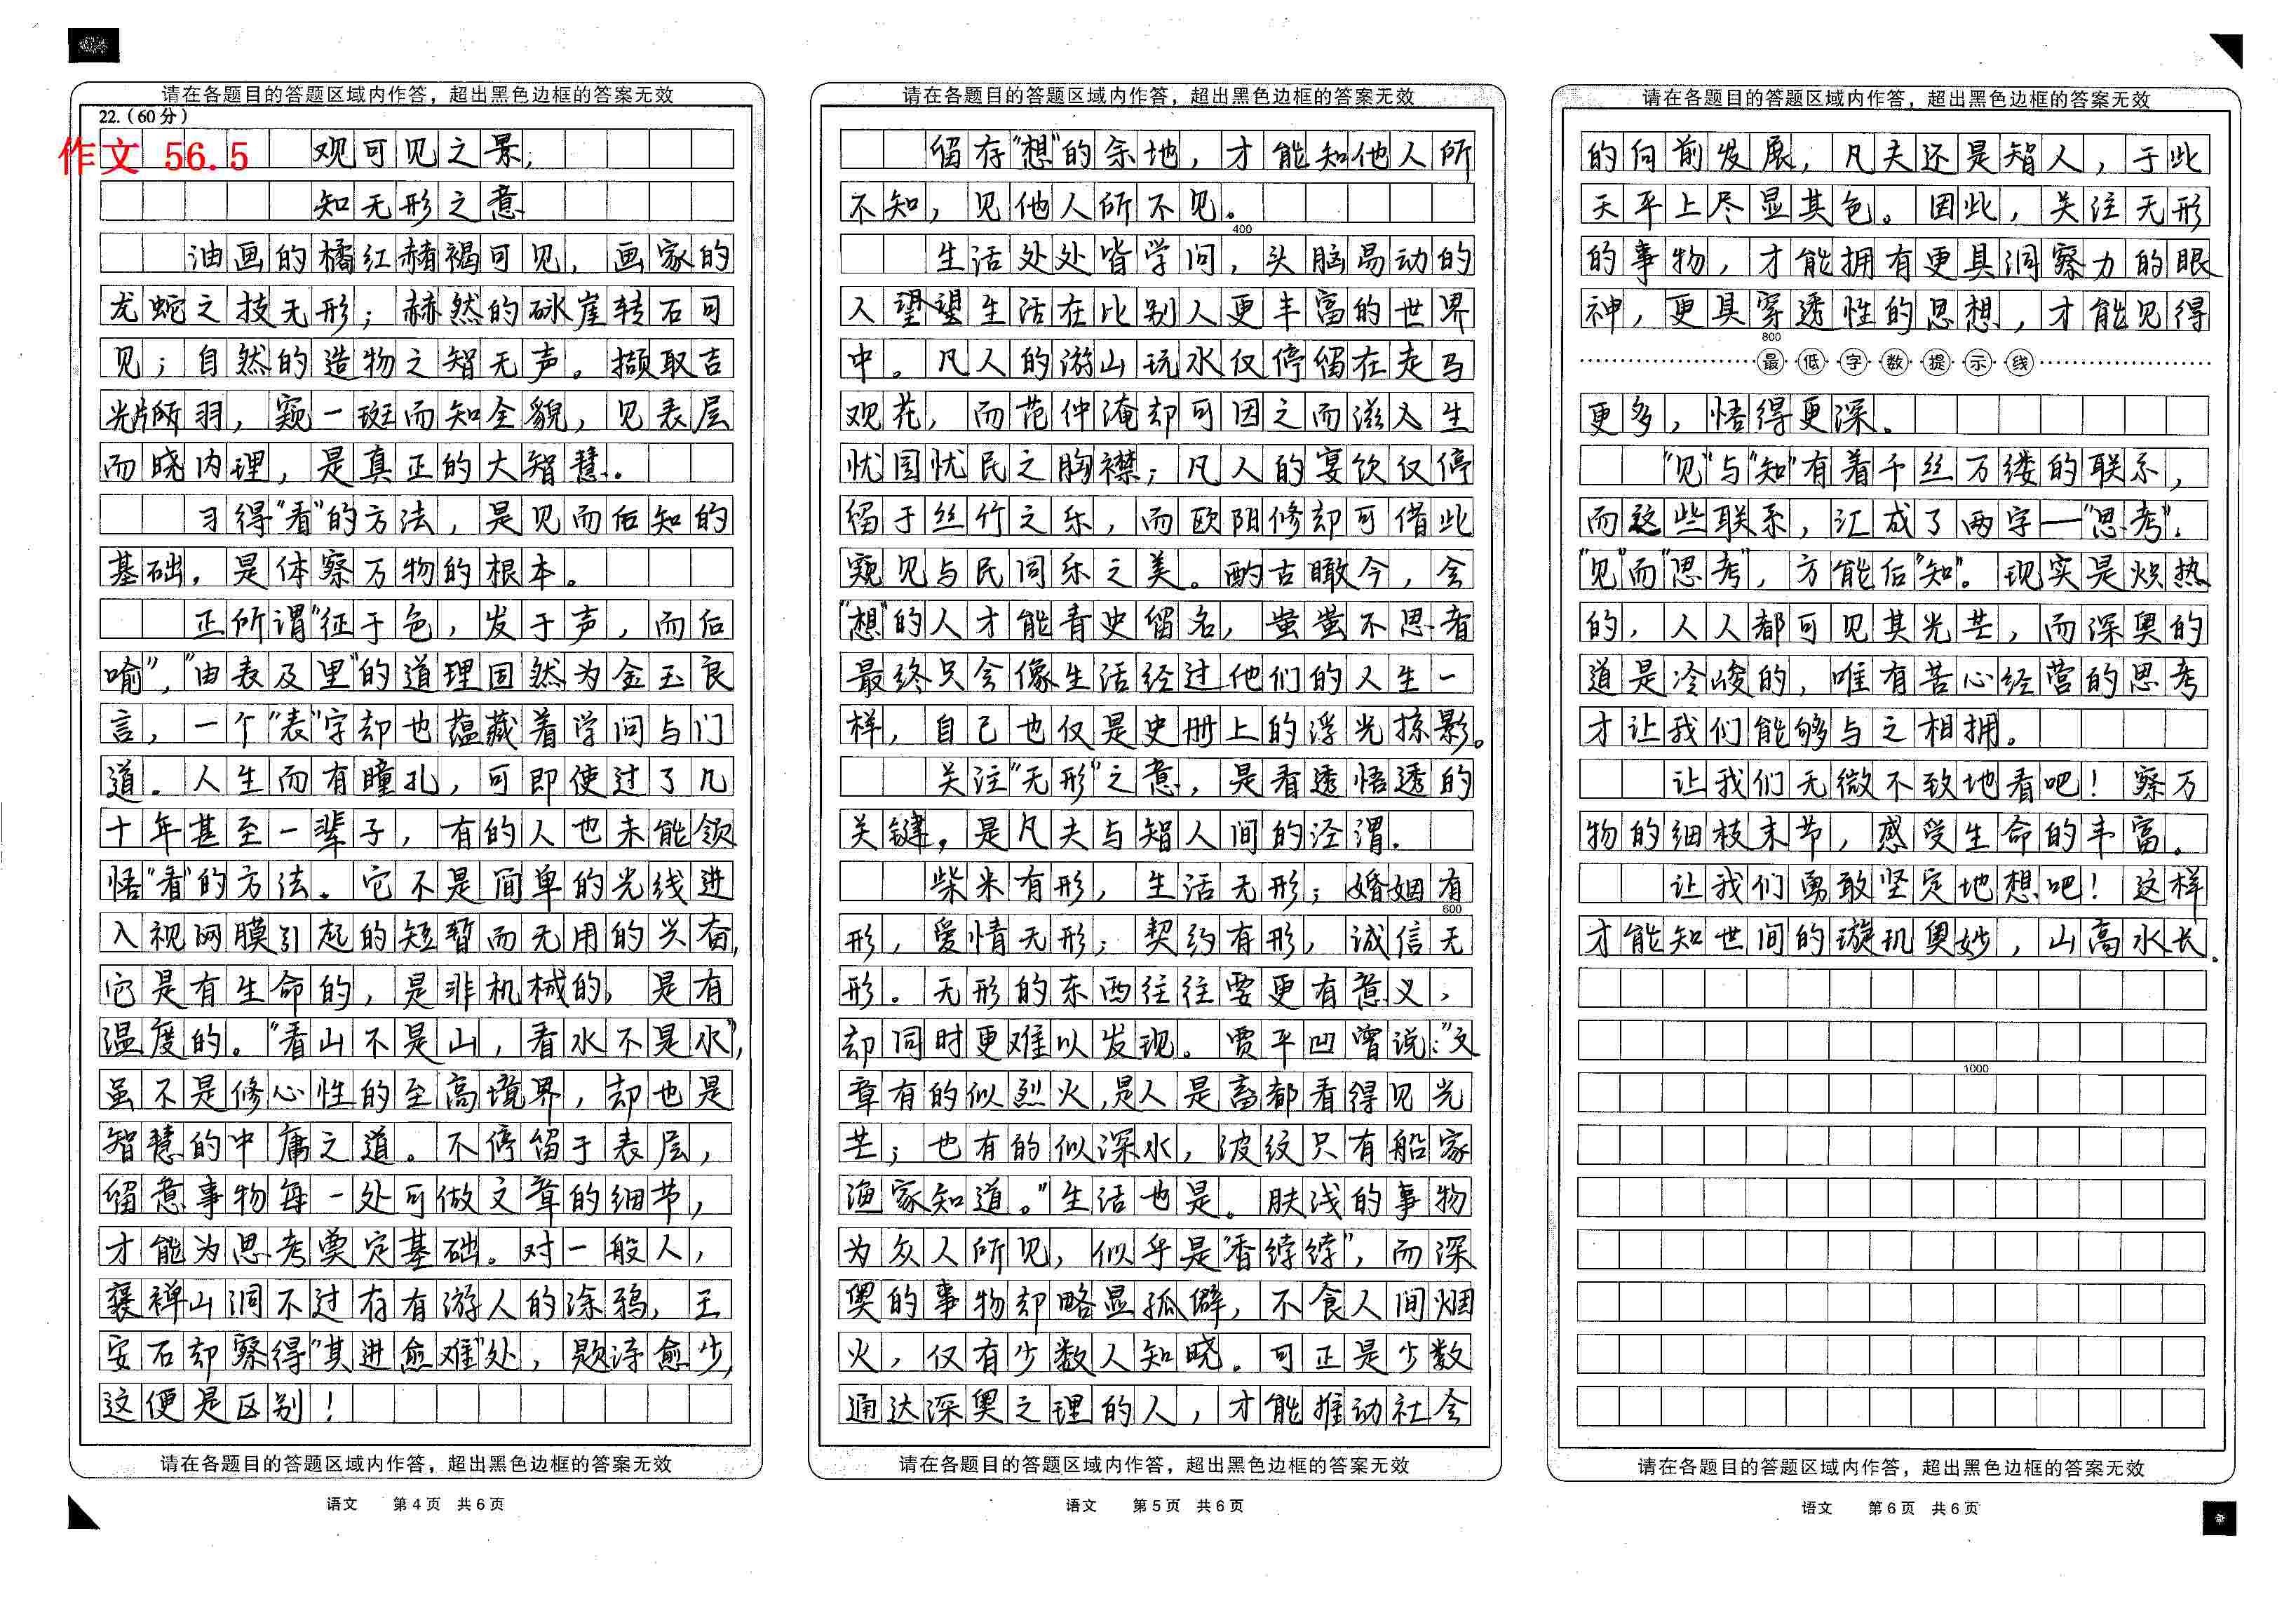 请在各题目的答题区域内作答，超出黑色边框的答案无效
22.（60分）
作文 56.5
观可见之景，
知无形之意
油画的橘红赭褐可见，画家的
龙蛇之技无形；赫然的砯崖转石可
见；自然的造物之智无声。撷取吉
光片羽，窥一斑而知全貌，见表层
而晓内理，是真正的大智慧。
习得“看”的方法，是见而后知的
基础，是体察万物的根本。
正所谓“征于色，发于声，而后
喻”，“由表及里”的道理固然为金玉良
言，一个“表”字却也蕴藏着学问与门
道。人生而有瞳孔，可即使过了几
十年甚至一辈子，有的人也未能领
悟“看”的方法。它不是简单的光线进
入视网膜引起的短暂而无用的兴奋，
它是有生命的，是非机械的，是有
温度的。“看山不是山，看水不是水”，
虽不是修心性的至高境界，却也是
智慧的中庸之道。不停留于表层，
留意事物每一处可做文章的细节，
才能为思考奠定基础。对一般人，
褒禅山洞不过存有游人的涂鸦，王
安石却察得“其进愈难”处，题诗愈少，
这便是区别！
请在各题目的答题区域内作答，超出黑色边框的答案无效
语文 第4页 共6页
请在各题目的答题区域内作答，超出黑色边框的答案无效
留存“想”的余地，才能知他人所
不知，见他人所不见。
400
生活处处皆学问，头脑灵动的
人望望生活在比别人更丰富的世界
中。凡人的游山玩水仅停留在走马
观花，而范仲淹却可因之而滋生
忧国忧民之胸襟；凡人的宴饮仅停
留于丝竹之乐，而欧阳修却可借此
窥见与民同乐之美。酌古瞰今，会
“想”的人才能青史留名，蚩蚩不思者
最终只会像生活经过他们的人生一
样，自己也仅是史册上的浮光掠影。
关注“无形”之意，是看透悟透的
关键，是凡夫与智人间的泾渭。
柴米有形，生活无形；婚姻有
600
形，爱情无形；契约有形，诚信无
形。无形的东西往往要更有意义，
却同时更难以发现。贾平凹曾说：“文
章有的似烈火，是人是畜都看得见光
芒；也有的似深水，波纹只有船家
渔家知道。”生活也是。肤浅的事物
为众人所见，似乎是“香饽饽”，而深
奥的事物却略显孤僻，不食人间烟
火，仅有少数人知晓。可正是少数
通达深奥之理的人，才能推动社会
请在各题目的答题区域内作答，超出黑色边框的答案无效
语文 第5页 共6页
请在各题目的答题区域内作答，超出黑色边框的答案无效
的向前发展，凡夫还是智人，于此
天平上尽显其色。因此，关注无形
的事物，才能拥有更具洞察力的眼
神，更具穿透性的思想，才能见得
800
最低字数提示线
更多，悟得更深。
“见”与“知”有着千丝万缕的联系，
而这些联系，汇成了两字—“思考”。
“见”而“思考”，方能后“知”。现实是炽热
的，人人都可见其光芒，而深奥的
道是冷峻的，唯有苦心经营的思考
才让我们能够与之相拥。
让我们无微不致地看吧！察万
物的细枝末节，感受生命的丰富。
让我们勇敢坚定地想吧！这样
才能知世间的璇玑奥妙，山高水长。
1000
请在各题目的答题区域内作答，超出黑色边框的答案无效
语文 第6页 共6页